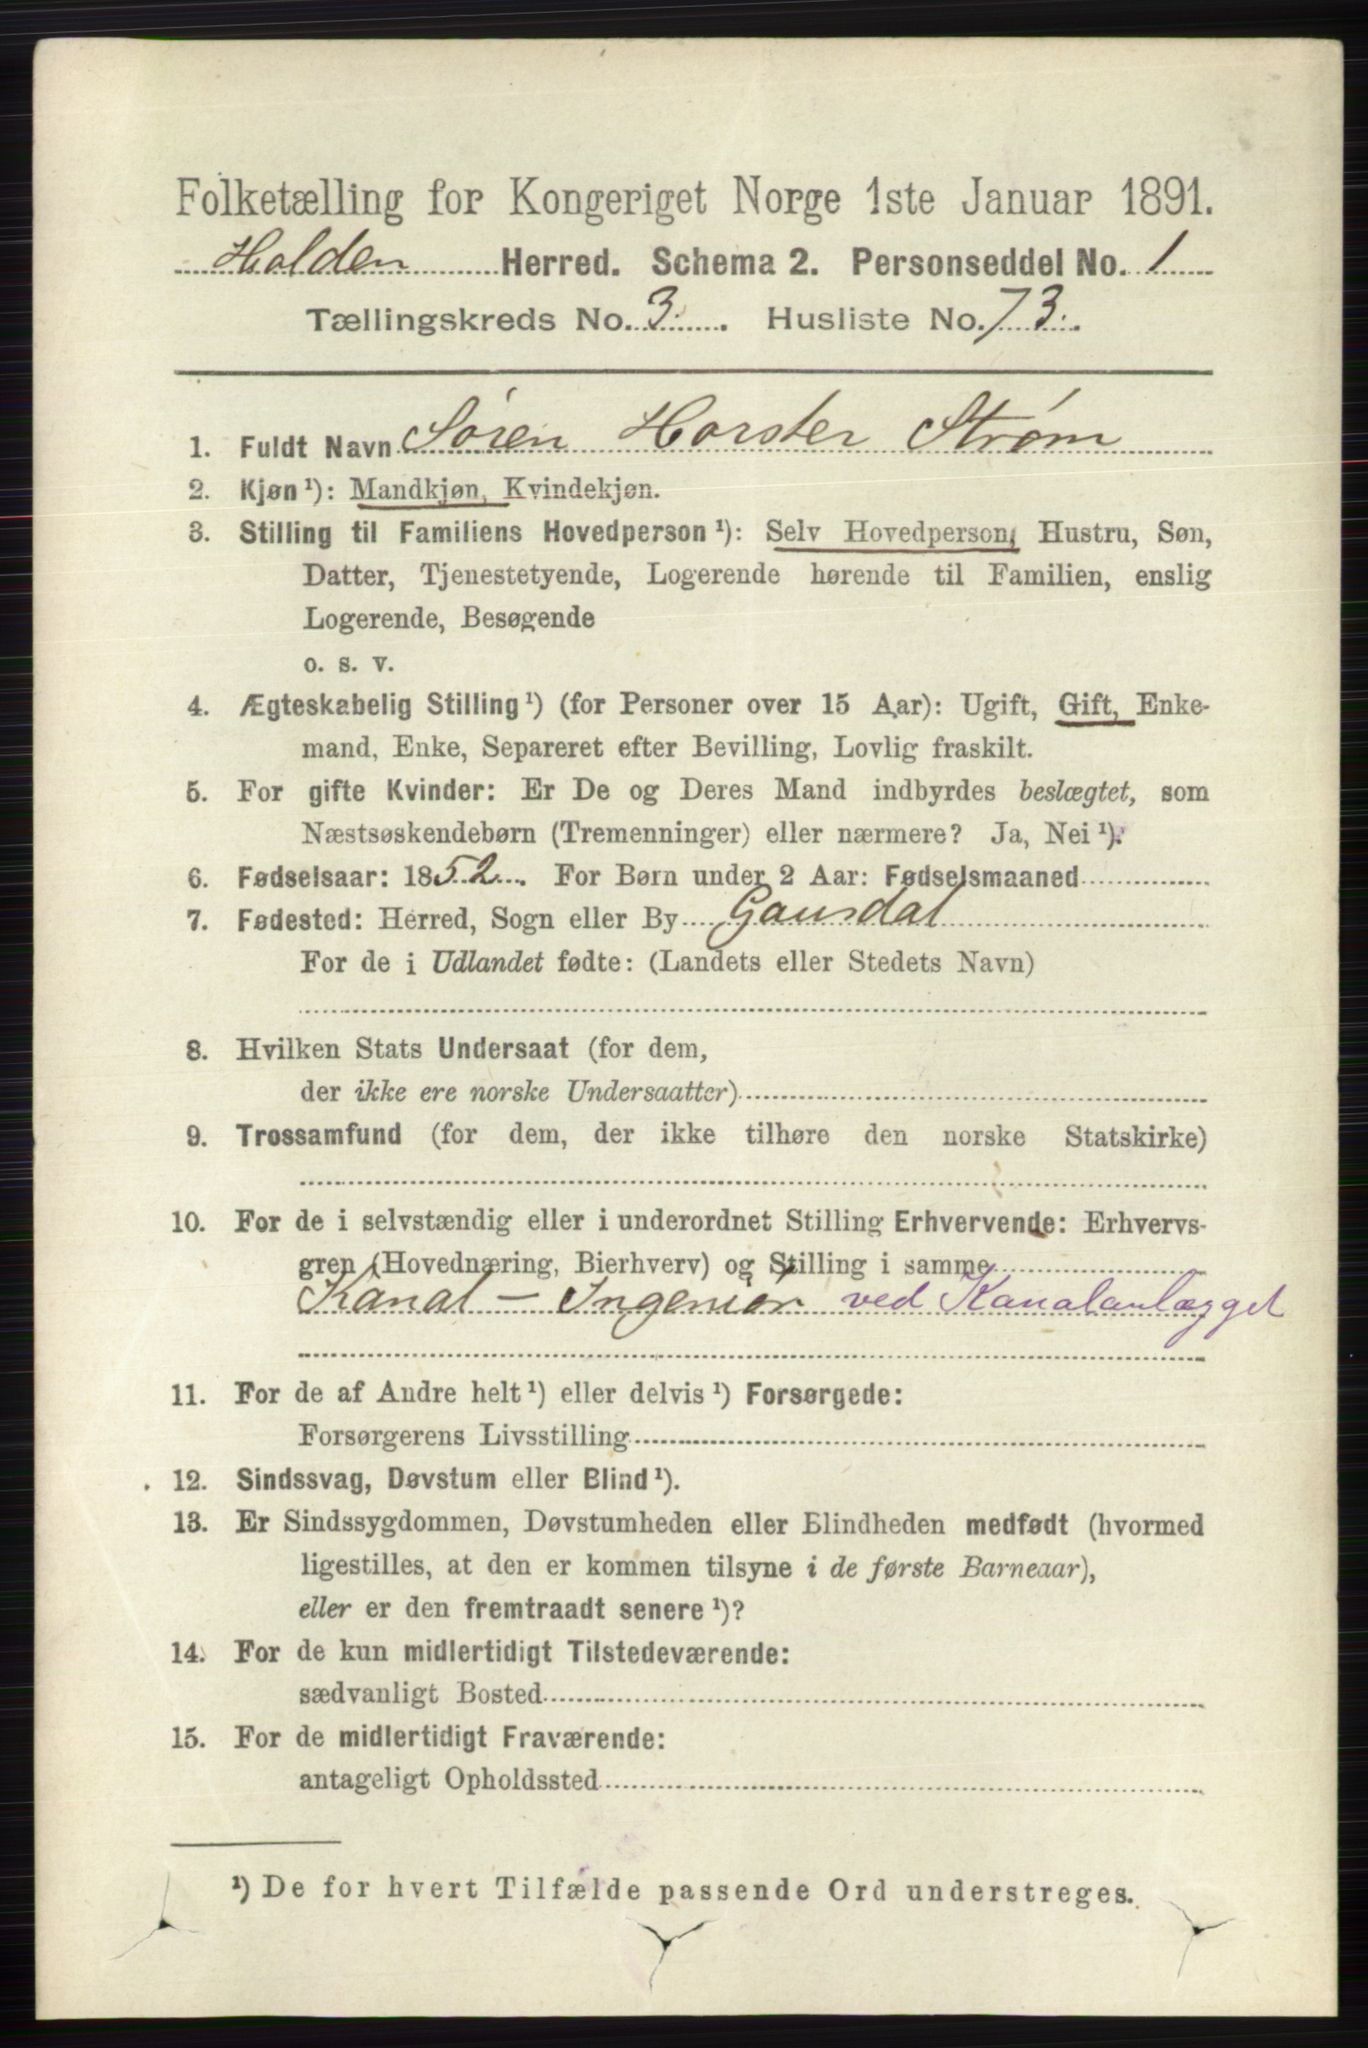 Folketælling for Kongeriget Norge 1ste Januar 1891.
Holden Herred. Schema 2. Personseddel No. 1
Tællingskreds No. 3. Husliste No. 73.
1. Fuldt Navn Søren Horster Strøm
2. Kjøn ¹): Mandkjøn, Kvindekjøn.
3. Stilling til Familiens Hovedperson ¹): Selv Hovedperson, Hustru, Søn,
Datter, Tjenestetyende, Logerende hørende til Familien, enslig
Logerende, Besøgende
o. s. v.
4. Ægteskabelig Stilling ¹) (for Personer over 15 Aar): Ugift, Gift, Enke-
mand, Enke, Separeret efter Bevilling, Lovlig fraskilt.
5. For gifte Kvinder: Er De og Deres Mand indbyrdes beslægtet, som
Næstsøskendebørn (Tremenninger) eller nærmere? Ja, Nei ¹).
6. Fødselsaar: 1852. For Børn under 2 Aar: Fødselsmaaned
7. Fødested: Herred, Sogn eller By Gausdal
For de i Udlandet fødte: (Landets eller Stedets Navn)
8. Hvilken Stats Undersaat (for dem,
der ikke ere norske Undersaatter)
9. Trossamfund (for dem, der ikke tilhøre den norske Statskirke)
10. For de i selvstændig eller i underordnet Stilling Erhvervende: Erhvervs-
gren (Hovednæring, Bierhverv) og Stilling i samme
Kanal - Ingeniør ved Kanalanlægget
11. For de af Andre helt ¹) eller delvis ¹) Forsørgede:
Forsørgerens Livsstilling
12. Sindssvag, Døvstum eller Blind ¹).
13. Er Sindssygdommen, Døvstumheden eller Blindheden medfødt (hvormed
ligestilles, at den er kommen tilsyne i de første Barneaar),
eller er den fremtraadt senere ¹)?
14. For de kun midlertidigt Tilstedeværende:
sædvanligt Bosted
15. For de midlertidigt Fraværende:
antageligt Opholdssted
¹) De for hvert Tilfælde passende Ord understreges.